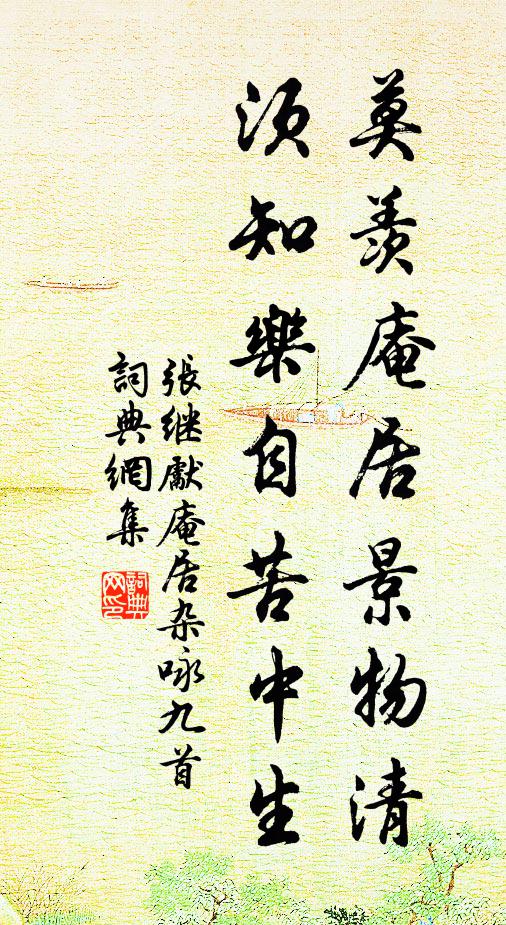 莫羨庵居景物清
須知樂自苦中生
張继獻庵居杂咏九首
詞典網集
詞典网印